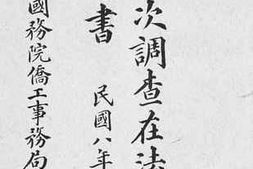 次調查在法
書
民國八年
國務院僑工事務局